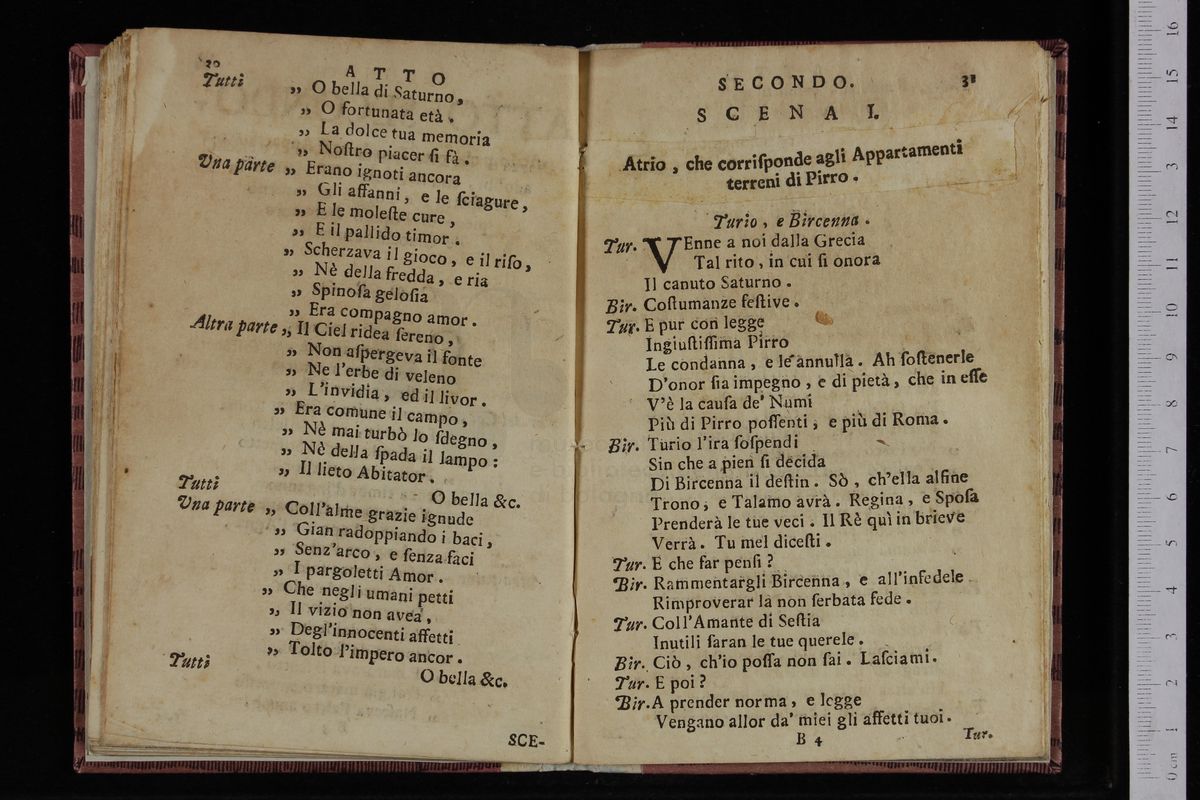 30
ATTO
Tutti ,, O bella di Saturno,
,, O fortunata età.
,, La dolce tua memoria
,, Noſtro piacer ſi fà.
Vna parte ,, Erano ignoti ancora
,, Gli affanni, e le ſciagure,
,, E le moleſte cure,
,, E il pallido timor.
,, Scherzava il gioco, e il riſo,
,, Nè della fredda, e ria
,, Spinoſa geloſia
,, Era compagno amor.
Altra parte ,, Il Ciel ridea ſereno,
,, Non aſpergeva il fonte
,, Ne l'erbe di veleno
,, L'invidia, ed il livor.
,, Era comune il campo,
,, Nè mai turbò lo ſdegno,
,, Nè della ſpada il lampo:
,, Il lieto Abitator.
Tutti O bella &c.
Vna parte ,, Coll'alme grazie ignude
,, Gian radoppiando i baci,
,, Senz'arco, e ſenza faci
,, I pargoletti Amor.
,, Che negli umani petti
,, Il vizio non avea,
,, Degl'innocenti affetti
,, Tolto l'impero ancor.
Tutti O bella &c.
SCE-
SECONDO. 31
SCENA I.
Atrio, che corriſponde agli Appartamenti
terreni di Pirro.
Turio, e Bircenna.
Tur. VEnne a noi dalla Grecia
Tal rito, in cui ſi onora
Il canuto Saturno.
Bir. Coſtumanze feſtive.
Tur. E pur con legge
Ingiuſtiſſima Pirro
Le condanna, e le annulla. Ah ſoſtenerle
D'onor ſia impegno, e di pietà, che in eſſe
V'è la cauſa de' Numi
Più di Pirro poſſenti, e più di Roma.
Bir. Turio l'ira ſoſpendi
Sin che a pien ſi decida
Di Bircenna il deſtin. Sò, ch'ella alfine
Trono, e Talamo avrà. Regina, e Spoſa
Prenderà le tue veci. Il Rè quì in brieve
Verrà. Tu mel diceſti.
Tur. E che far penſi?
Bir. Rammentargli Bircenna, e all'infedele
Rimproverar la non ſerbata fede.
Tur. Coll'Amante di Seſtia
Inutili ſaran le tue querele.
Bir. Ciò, ch'io poſſa non ſai. Laſciami.
Tur. E poi?
Bir. A prender norma, e legge
Vengano allor da' miei gli affetti tuoi.
B 4
Tur.
16
15
14
13
12
11
10
9
8
7
6
5
4
3
2
1
0 cm